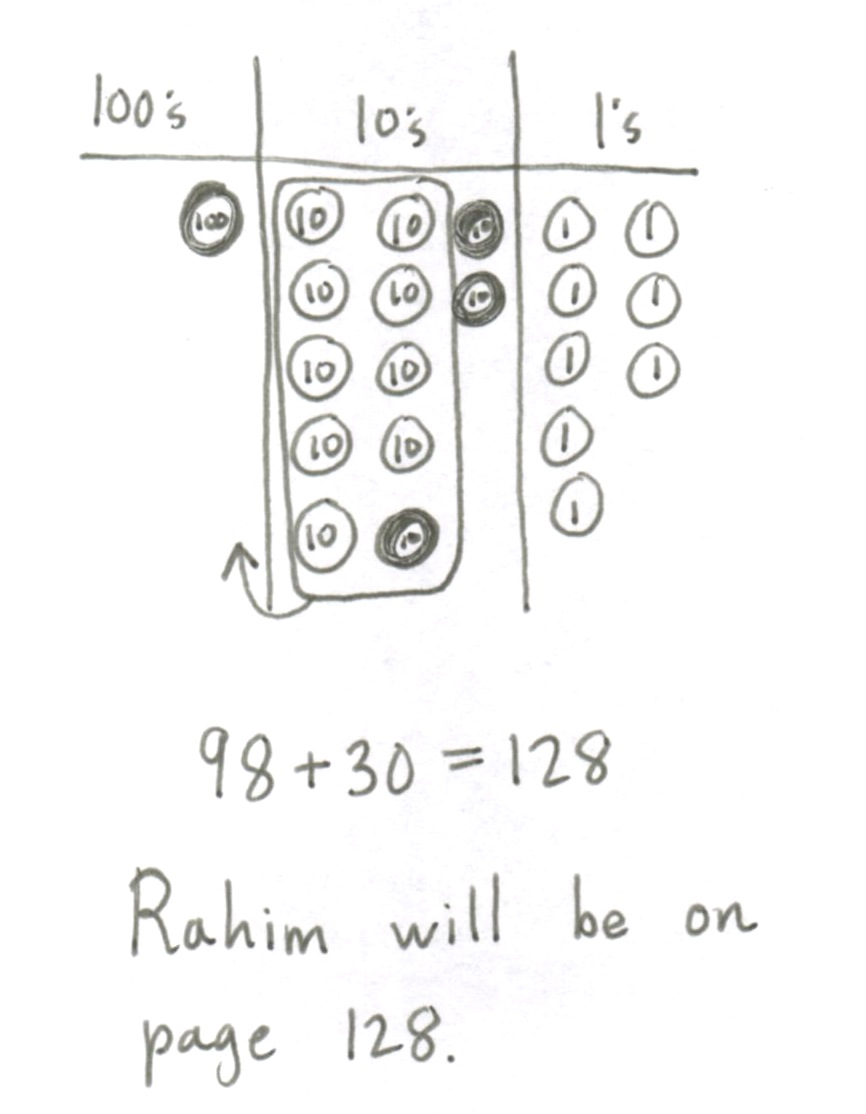 100's 10's 1's
100 10 10 10 1 1
10 10 10 1 1
10 10 1 1
10 10 1
10 10 1
98 + 30 = 128
Rahim will be on
page 128.